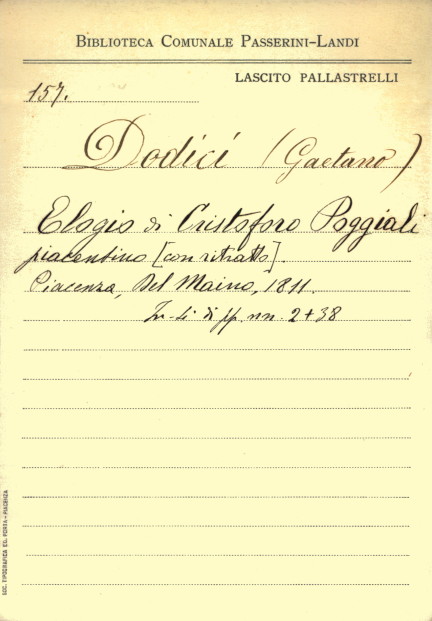 BIBLIOTECA COMUNALE PASSERINI-LANDI
LASCITO PALLASTRELLI
157.
Dodici (Gaetano)
Elogio di Cristoforo Poggiali
piacentino [con ritratto].
Piacenza, Del Maino, 1811.
In-4° di pp. nn. 2+38
SOC. TIPOGRAFICA ED. PORTA-PIACENZA